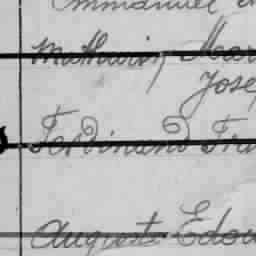 Emmanuel
Mathurin Mar
Jose
Ferdinand Fra
Auguste Edou